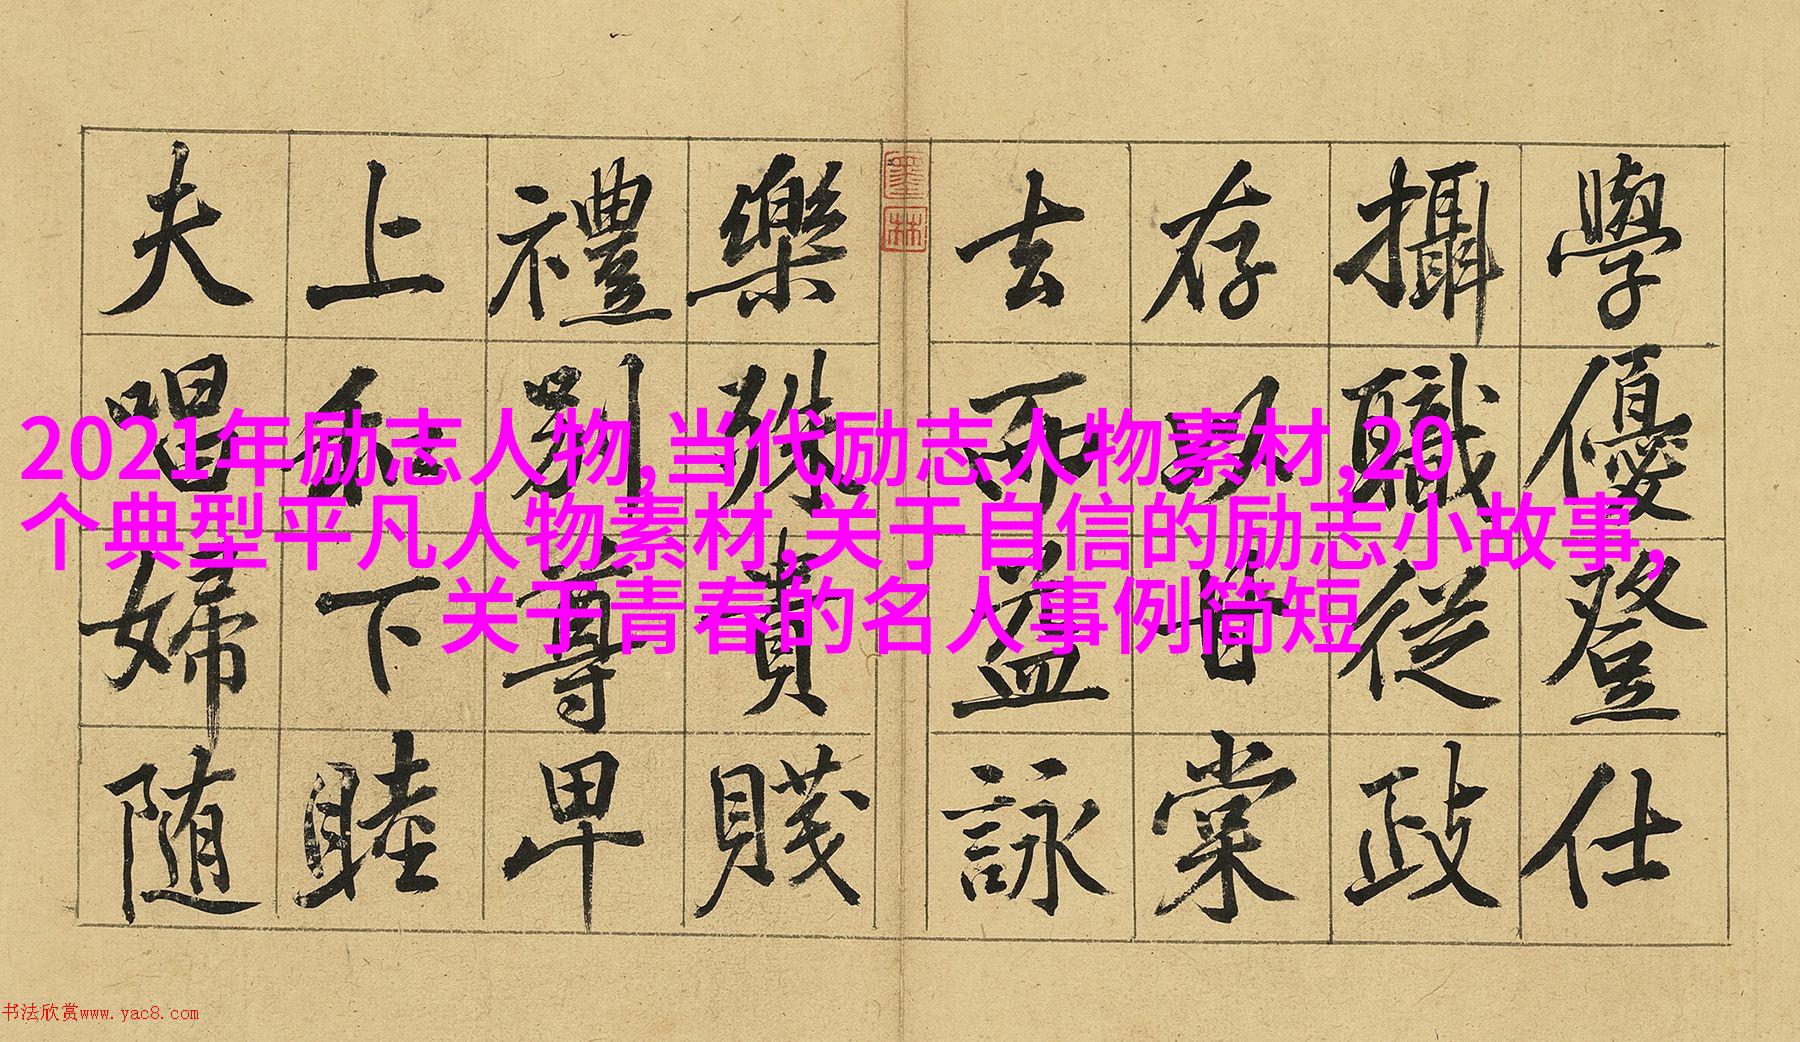 學優登仕
攝職從政
存以甘棠
去而益詠
樂殊貴賤
禮別尊卑
上和下睦
夫唱婦随
墨林
2021年励志人物,当代励志人物素材,20
个典型平凡人物素材,关于自信的励志小故事,
关于青春的名人事例简短
书法欣赏www.yac8.com